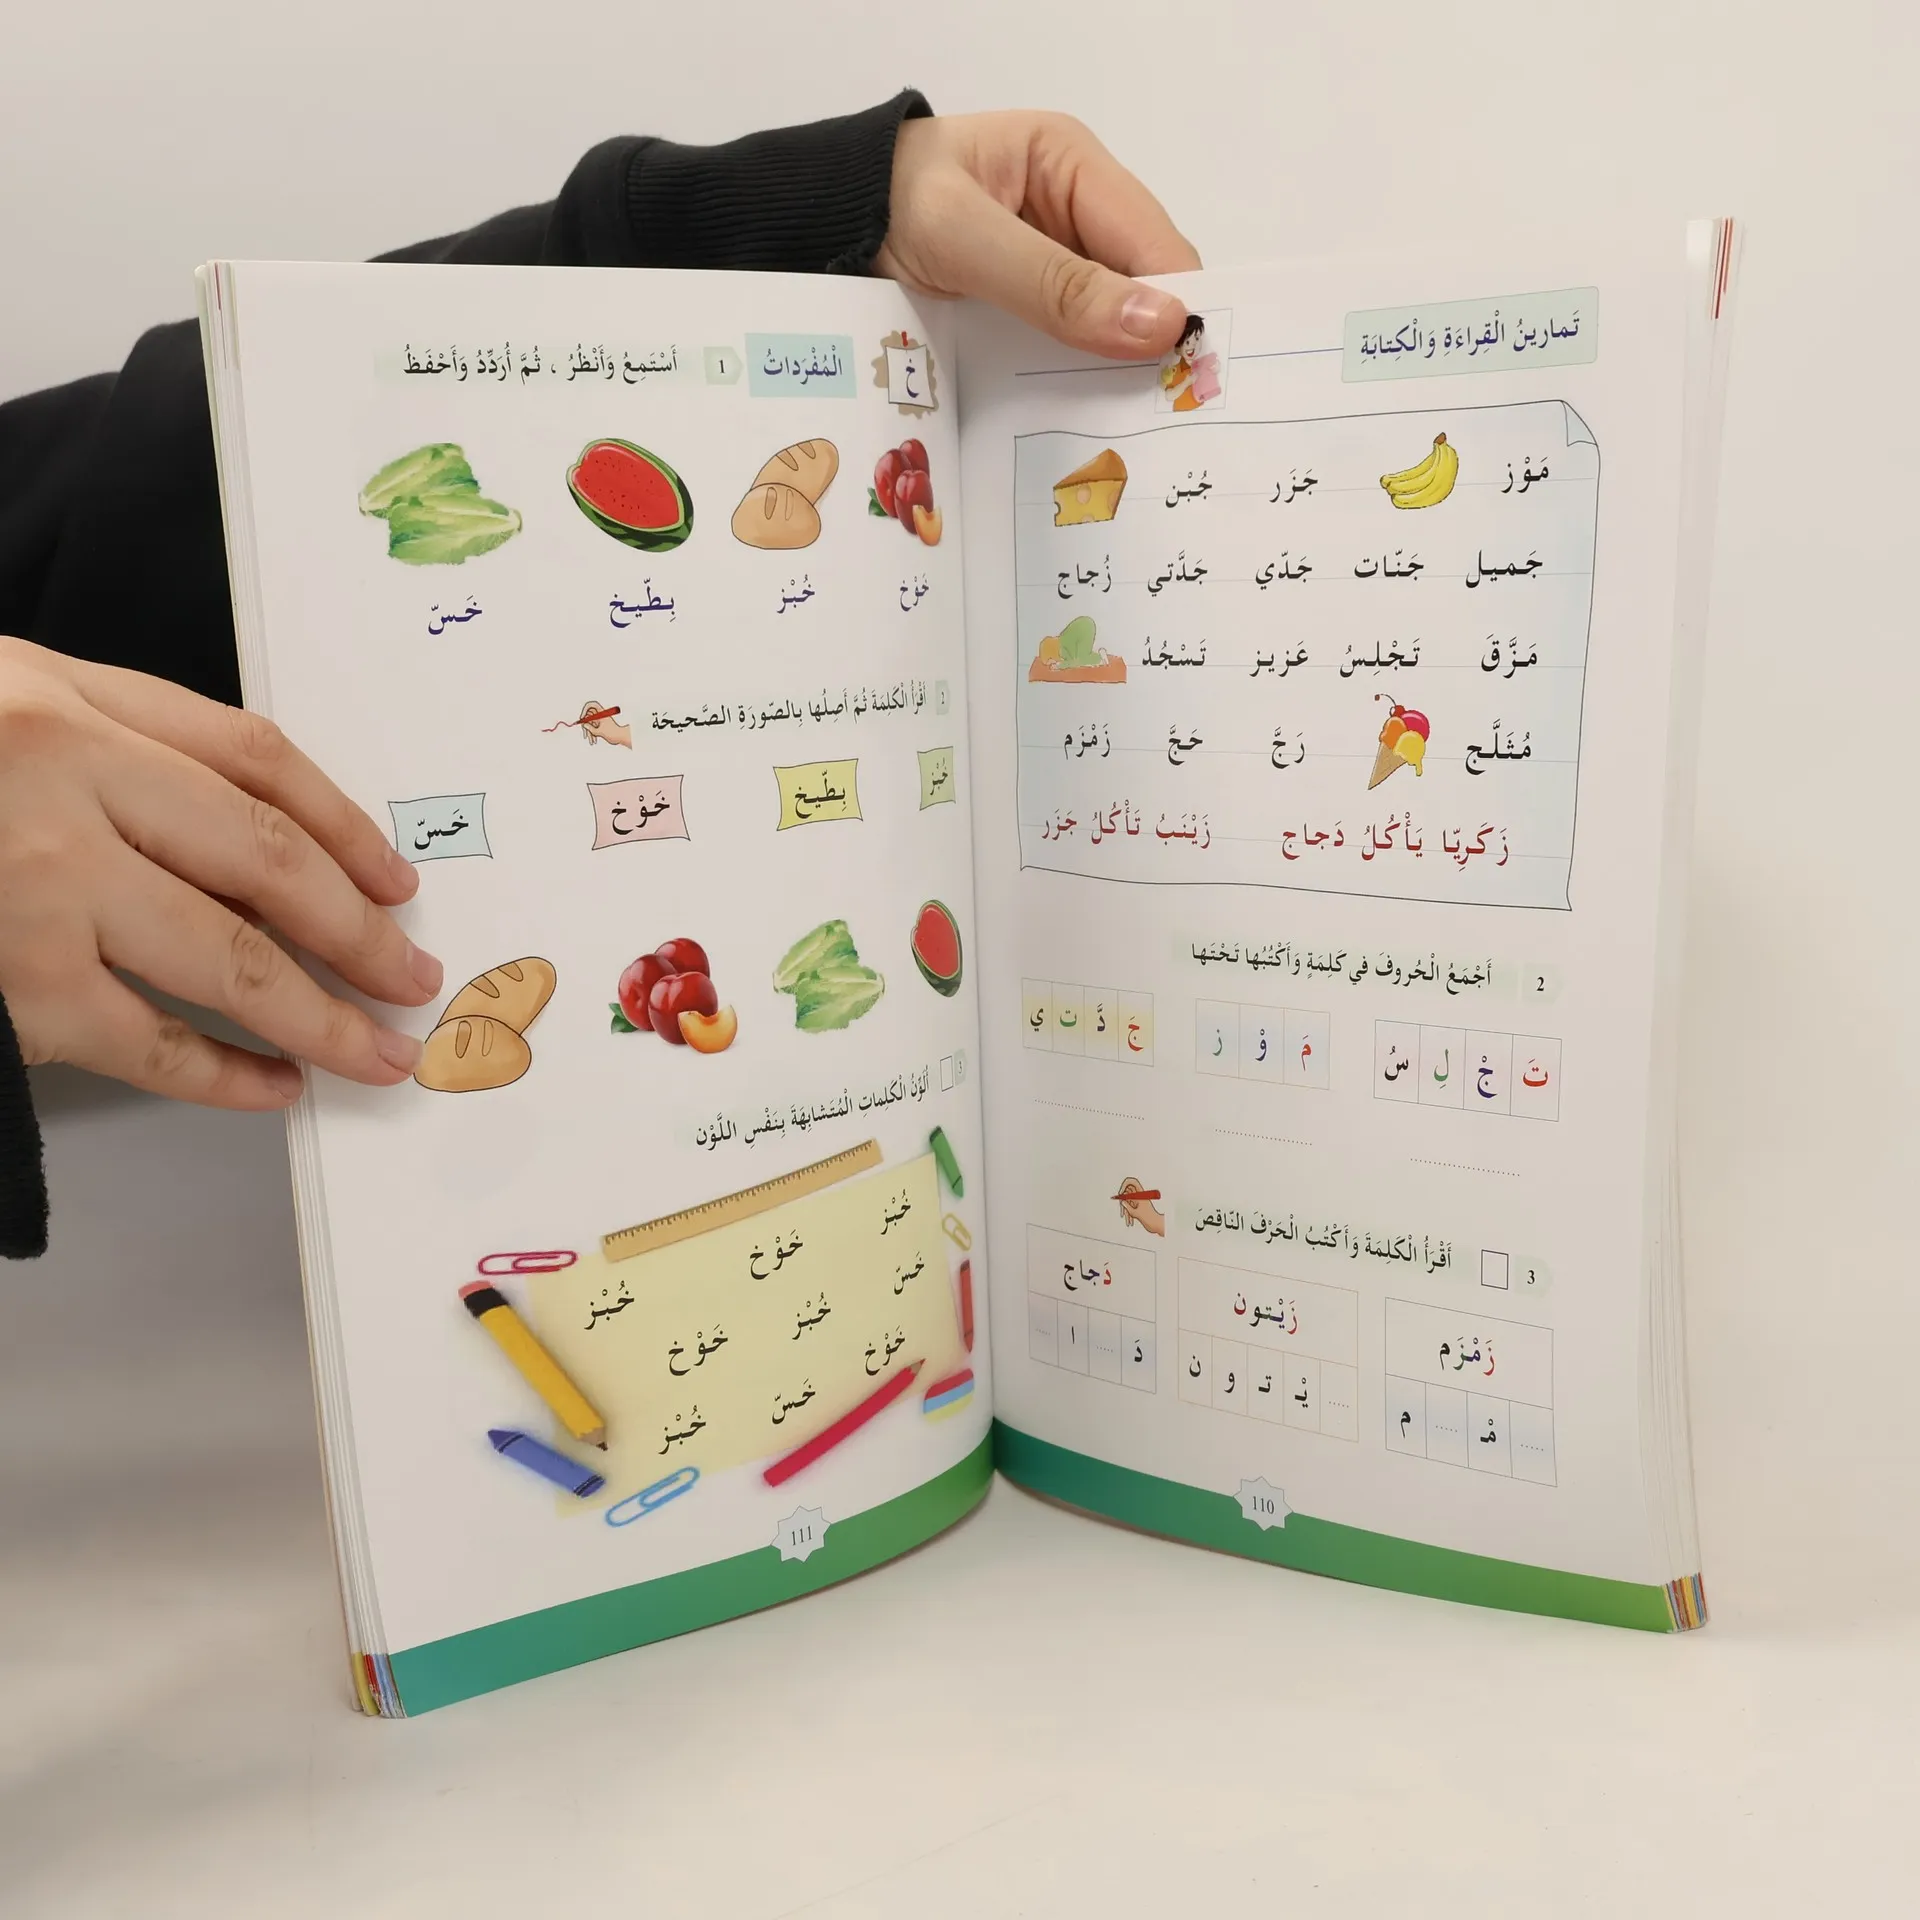 تَمارينُ الْقِراءَةِ وَالْكِتابَةِ
مَوْز جَزَر جُبْن
جَميل جَنّات جَدّي جَدَّتي زُجاج
مَزَّقَ تَجْلِسُ عَزيز تَسْجُدُ
مُثَلَّج رَجَّ حَجَّ زَمْزَم
زَكَرِيّا يَأْكُلُ دَجاج زَيْنَبُ تَأْكُلُ جَزَر
2 أَجْمَعُ الْحُروفَ في كَلِمَةٍ وَأَكْتُبُها تَحْتَها
تَ جْ لِ سُ مَ وْ ز جَ دَّ ت ي
3 أَقْرَأُ الْكَلِمَةَ وَأَكْتُبُ الْحَرْفَ النّاقِصَ
زَمْزَم زَيْتون دَجاج
..... مْـ ..... م ..... يْـ تـ و ن دَ ..... ا .....
110
خ الْمُفْرَداتُ 1 أَسْتَمِعُ وَأَنْظُرُ ، ثُمَّ أُرَدِّدُ وَأَحْفَظُ
خَوْخ خُبْز بِطّيخ خَسّ
2 أَقْرَأُ الْكَلِمَةَ ثُمَّ أَصِلُها بِالصّورَةِ الصَّحيحَة
خُبْز بِطّيخ خَوْخ خَسّ
3 أُلَوِّنُ الْكَلِماتِ الْمُتَشابِهَةَ بِنَفْسِ اللَّوْن
خُبْز خَوْخ خُبْز
خَسّ خُبْز خَوْخ
خَوْخ خَسّ خُبْز
111